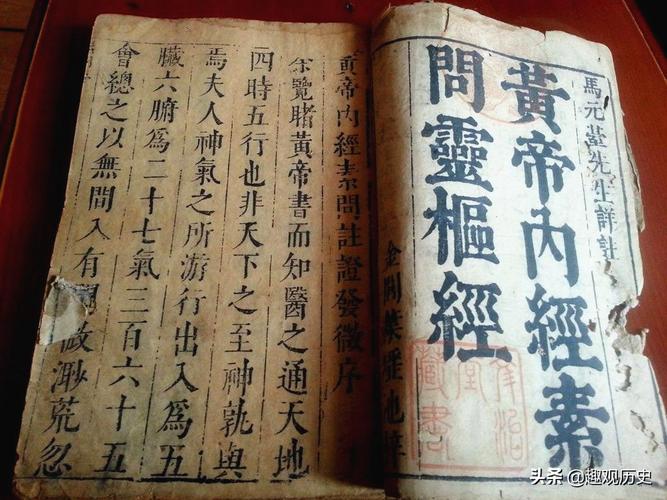 馬元臺先生詳註
黃帝內經素
問靈樞經
黃帝內經素問註證發微序
余覽睹黃帝書而知醫之通天地
四時五行也非天下之至神孰與
焉夫人神氣之所游行出入為五
臟六腑為二十七氣三百六十五
會總之以無間入有間微渺荒忽
藏書
头条 @趣观历史